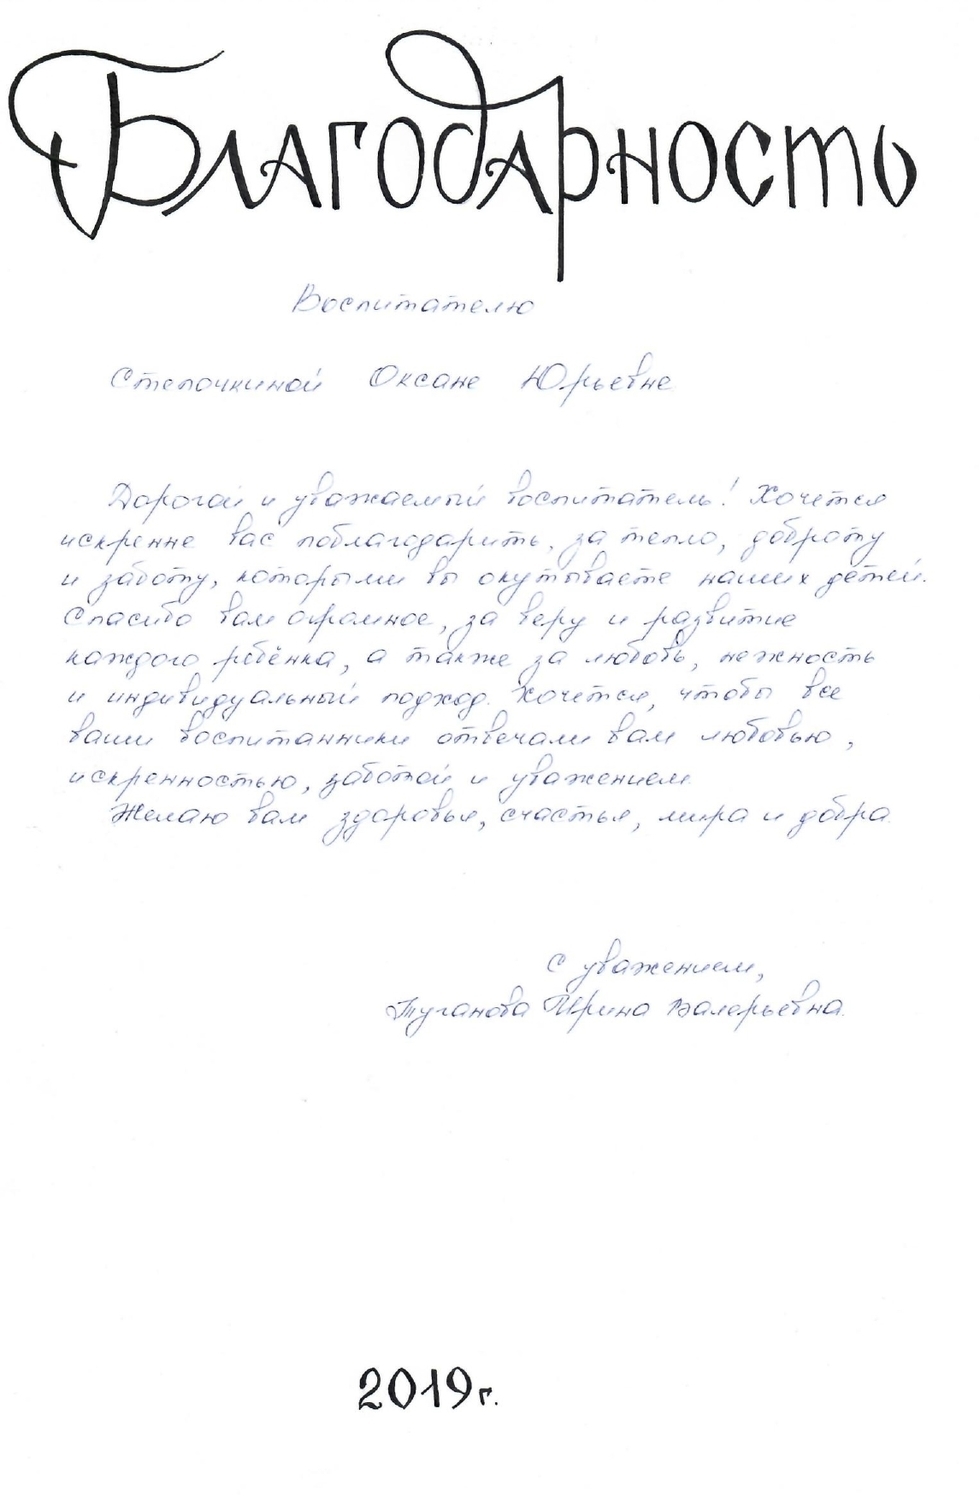 Благодарность
Воспитателю
Степочкиной Оксане Юрьевне
Дорогой и уважаемый воспитатель! Хочется
искренне вас поблагодарить, за тепло, доброту
и заботу, которыми вы окутываете наших детей.
Спасибо вам огромное, за веру и развитие
каждого ребёнка, а также за любовь, нежность
и индивидуальный подход. Хочется, чтобы все
ваши воспитанники отвечали вам любовью,
искренностью, заботой и уважением.
Желаю вам здоровья, счастья, мира и добра.
С уважением,
Туганова Ирина Валерьевна.
2019г.